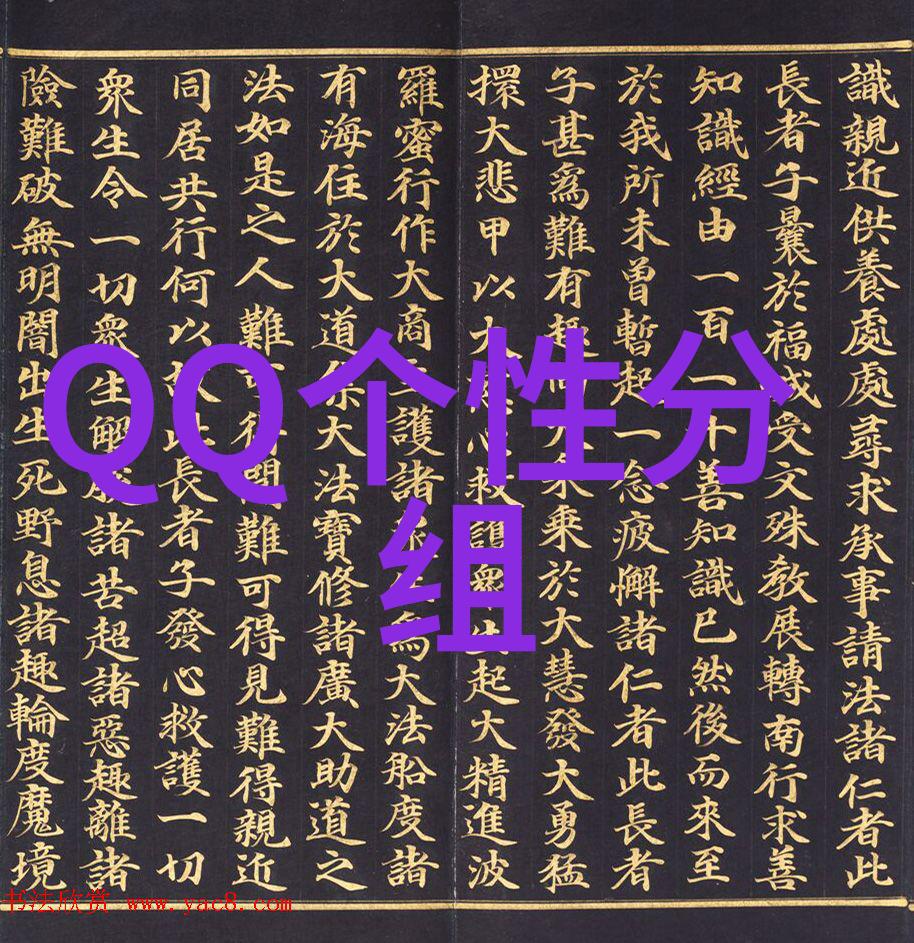 識親近供養處處尋求承事請法諸仁者此
長者子曩於福城受文殊教展轉南行求善
知識經由一百一十善知識已然後而來至
於我所未曾暫起一念疲懈諸仁者此長者
子甚爲難有趣向大乘乘於大慧發大勇猛
擐大悲甲以大慈心救護衆生起大精進波
羅蜜行作大商主護諸衆生爲大法船度諸
有海住於大道集大法寶修諸廣大助道之
法如是之人難可得聞難可得見難得親近
同居共行何以故此長者子發心救護一切
衆生令一切衆生解脫諸苦超諸惡趣離諸
險難破無明闇出生死野息諸趣輪度魔境
QQ个性分
组
书法欣赏 www.yac8.com